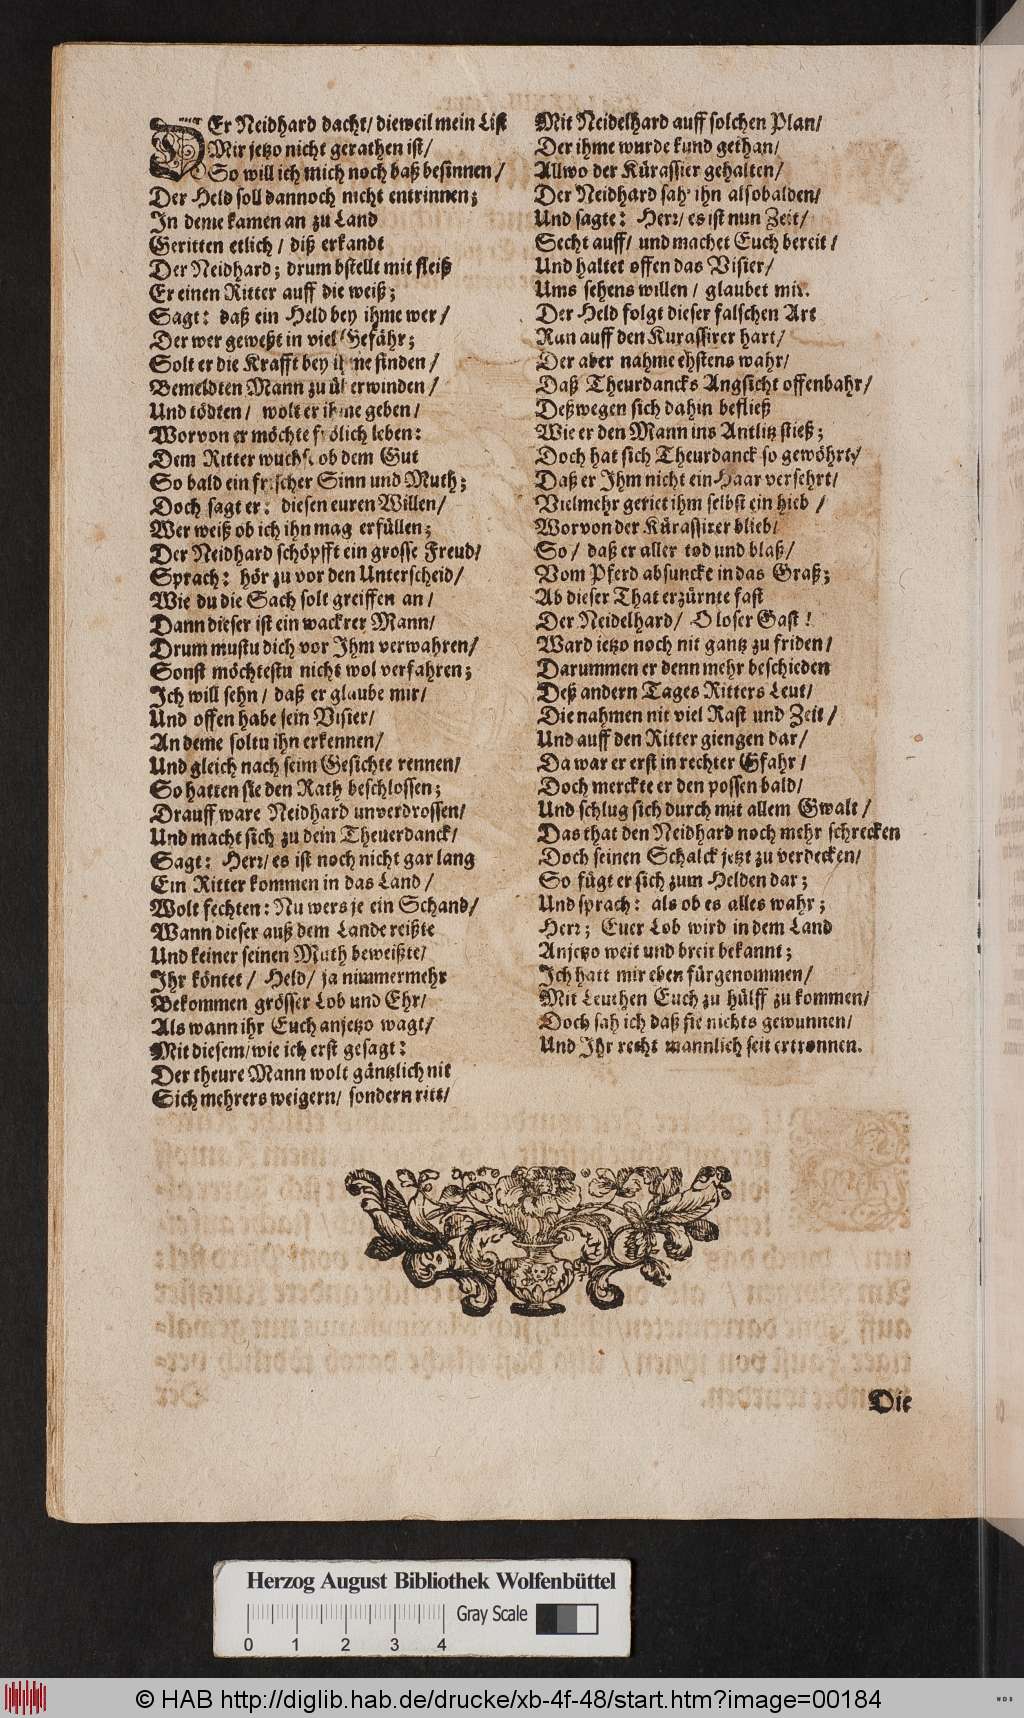 DEr Neidhard dacht/ dieweil mein List
Mir jetzo nicht gerathen ist/
So will ich mich noch baß besinnen/
Der Held soll dannoch nicht entrinnen;
In deme kamen an zu Land
Geritten etlich/ diß erkandt
Der Neidhard; drum bstellt mit fleiß
Er einen Ritter auff die weiß;
Sagt: daß ein Held bey ihme wer/
Der wer geweßt in viel Gefähr;
Solt er die Krafft bey ihme finden/
Bemeldten Mann zu überwinden/
Und tödten/ wolt er ihme geben/
Worvon er möchte frölich leben:
Dem Ritter wuchs ob dem Gut
So bald ein frischer Sinn und Muth;
Doch sagt er: diesen euren Willen/
Wer weiß ob ich ihn mag erfüllen;
Der Neidhard schöpfft ein grosse Freud/
Sprach: hör zu vor den Unterscheid/
Wie du die Sach solt greiffen an/
Dann dieser ist ein wackrer Mann/
Drum mustu dich vor Ihm verwahren/
Sonst möchtestu nicht wol verfahren;
Ich will sehn/ daß er glaube mir/
Und offen habe sein Visier/
An deme soltu ihn erkennen/
Und gleich nach seim Gesichte rennen/
So hatten sie den Rath beschlossen;
Drauff ware Neidhard unverdrossen/
Und macht sich zu dem Theuerdanck/
Sagt: Herr/ es ist noch nicht gar lang
Ein Ritter kommen in das Land/
Wolt fechten: Nu wers je ein Schand/
Wann dieser auß dem Lande reißte
Und keiner seinen Muth beweißte/
Ihr köntet/ Held/ ja nimmermehr
Bekommen grösser Lob und Ehr/
Als wann ihr Euch anjetzo wagt/
Mit diesem/ wie ich erst gesagt:
Der theure Mann wolt gäntzlich nit
Sich mehrers weigern/ sondern ritt/
Mit Neidelhard auff solchen Plan/
Der ihme wurde kund gethan/
Allwo der Kürassier gehalten/
Der Neidhard sah ihn alsobalden/
Und sagte: Herr/ es ist nun Zeit/
Secht auff/ und machet Euch bereit/
Und haltet offen das Visier/
Ums sehens willen/ glaubet mir.
Der Held folgt dieser falschen Art
Ran auff den Kurassirer hart/
Der aber nahme ehstens wahr/
Daß Theurdancks Angsicht offenbahr/
Deßwegen sich dahin befließ
Wie er den Mann ins Antlitz stieß;
Doch hat sich Theurdanck so gewöhrt/
Daß er Ihm nicht ein Haar versehrt/
Vielmehr geriet ihm selbst ein hieb/
Worvon der Kürassirer blieb/
So/ daß er aller tod und blaß/
Vom Pferd absuncke in das Graß;
Ab dieser That erzürnte fast
Der Neidelhard/ O loser Gast!
Ward jetzo noch nit gantz zu friden/
Darummen er denn mehr beschieden
Deß andern Tages Ritters Leut/
Die nahmen nit viel Rast und Zeit/
Und auff den Ritter giengen dar/
Da war er erst in rechter Gfahr/
Doch merckte er den possen bald/
Und schlug sich durch mit allem Gwalt/
Das that den Neidhard noch mehr schrecken
Doch seinen Schalck jetzt zu verdecken/
So fügt er sich zum Helden dar;
Und sprach: als ob es alles wahr;
Herr; Euer Lob wird in dem Land
Anjetzo weit und breit bekannt;
Ich hatt mir eben fürgenommen/
Mit Leuthen Euch zu hülff zu kommen/
Doch sah ich daß sie nichts gewunnen/
Und Ihr recht mannlich seit ertronnen.
Die
Herzog August Bibliothek Wolfenbüttel
Gray Scale
0 1 2 3 4
© HAB http://diglib.hab.de/drucke/xb-4f-48/start.htm?image=00184